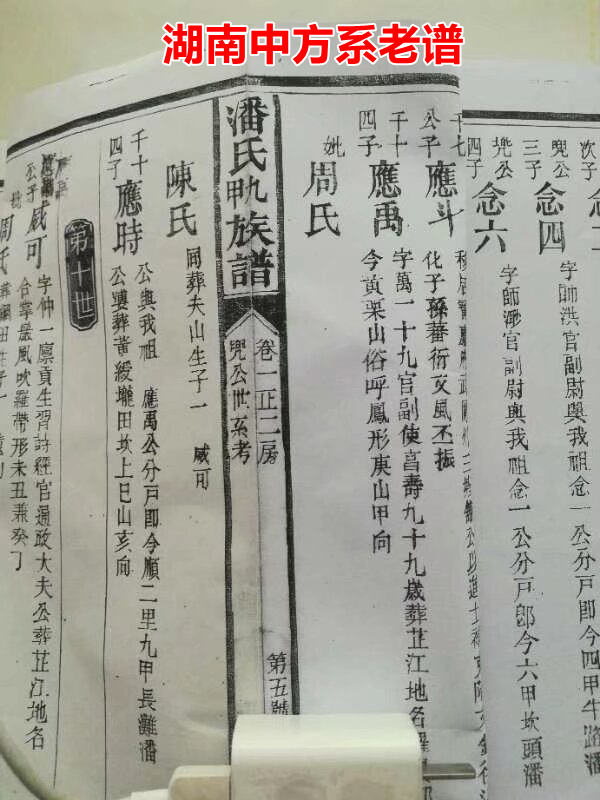 湖南中方系老谱
次子
念二
兕公
三子
念四
字師洪官副尉與我祖念一公分戸即今四甲牛路潘
兕公
四子
念六
字師瀨官副尉與我祖念一公分戸即今六甲坎頭潘
千七
公子
應斗
化子孫蕃衍文風丕振
千十
四子
應禹
字萬一十九官副使享壽九十九歲葬芷江地名羅
今黄栗山俗呼鳳形庚山甲向
妣
周氏
潘氏九甲族譜
卷一正二房
兕公世系考
第五號
陳氏
同葬夫山生子一 咸可
千十
四子
應時
公與我祖 應禹公分戸即今順二里九甲長灘潘
公婁葬黄綬壠田坎上巳山亥向
第十世
應時
公子
咸可
字仲一廪貢生習詩經官通政大夫公葬芷江地名
台華嚴風吹羅帶形未丑兼癸丁
周氏